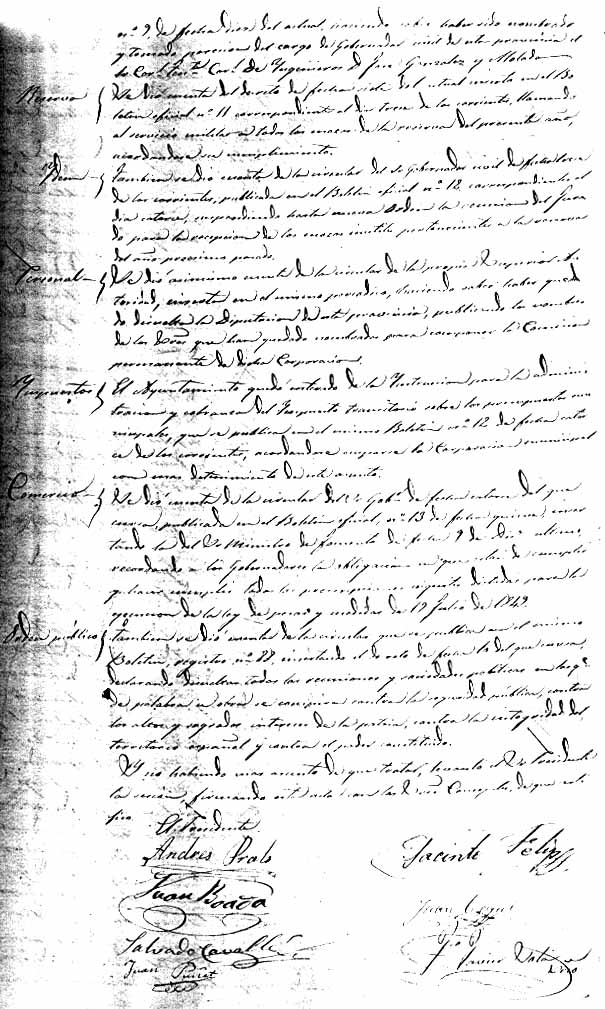 nº 9, de fecha diez del actual, haciendo saber haber sido nombrado
y tomado posesion del cargo de Gobernador civil de esta provincia el
Cor. de Ingenieros D. José Gonzalez y Molada
Reserva Se dió cuenta del decreto de fecha siete del actual inserto en el Bo
letin oficial nº 11 correspondiente al dia trece de los corrientes, llamando
al servicio militar a todos los mozos de la reserva del presente año,
acordandose su cumplimiento.
Ydem Tambien se dió cuenta de la circular del Sr Gobernador civil de fecha doce
de los corrientes, publicada en el Boletin oficial nº 12 correspondiente al
dia catorce, suspendiendo hasta nueva orden la reunion del Jura
do para la recepcion de los mozos inutiles pertenecientes a la reserva
del año procsimo pasado.
Personal Se dió asimismo cuenta de la circular de la propia Superior Au
toridad, inserta en el mismo periodico, haciendo saber haber queda
do disuelta la Diputacion de esta provincia, publicando los nombres
de los Sres que han quedado nombrados para componer la Comision
permanente de dicha Corporacion.
Ympuestos El Ayuntamiento quedó enterado de la Ynstruccion para la adminis
tracion y cobranza del Ympuesto transitorio sobre los presupuestos mu
nicipales, que se publica en el mismo Boletin nº 12 de fecha cator
ce de los corrientes, acordandose ocuparse la Corporacion municipal
con mas detenimiento de este asunto.
Comercio Se dió cuenta de la circular del Sr Gobr de fecha catorce del que
cursa, publicada en el Boletin oficial, nº 13 de fecha quince, inser
tando la del Sr Ministro de fomento de fecha 9 de Dic. ultimo,
recordando a los Gobernadores la obligacion en que estan de cumplir
y hacer cumplir todas las prescripciones dictadas para la
ejecucion de la ley de pesas y medidas de 19 Julio de 1849.
Orden público Tambien se dió cuenta de la circular que se publica en el mismo
Boletin, registro nº 88, insertando el decreto de fecha 10 del que cursa,
declarando disueltas todas las reuniones y sociedades politicas en las q.e
de palabra u obra se conspire contra la seguridad pública, contra
los altos y sagrados intereses de la patria, contra la integridad del
territorio español y contra el poder constituido.
Y no habiendo mas asunto de que tratar, levantó el Sr Presidente
la sesion, firmando esta acta con los Sres Concejales, de que certi
fico
El Presidente
Andrés Prats
Jacinto Feliu
Juan Boada
Juan
Salvado Cavallé
Juan
Javier